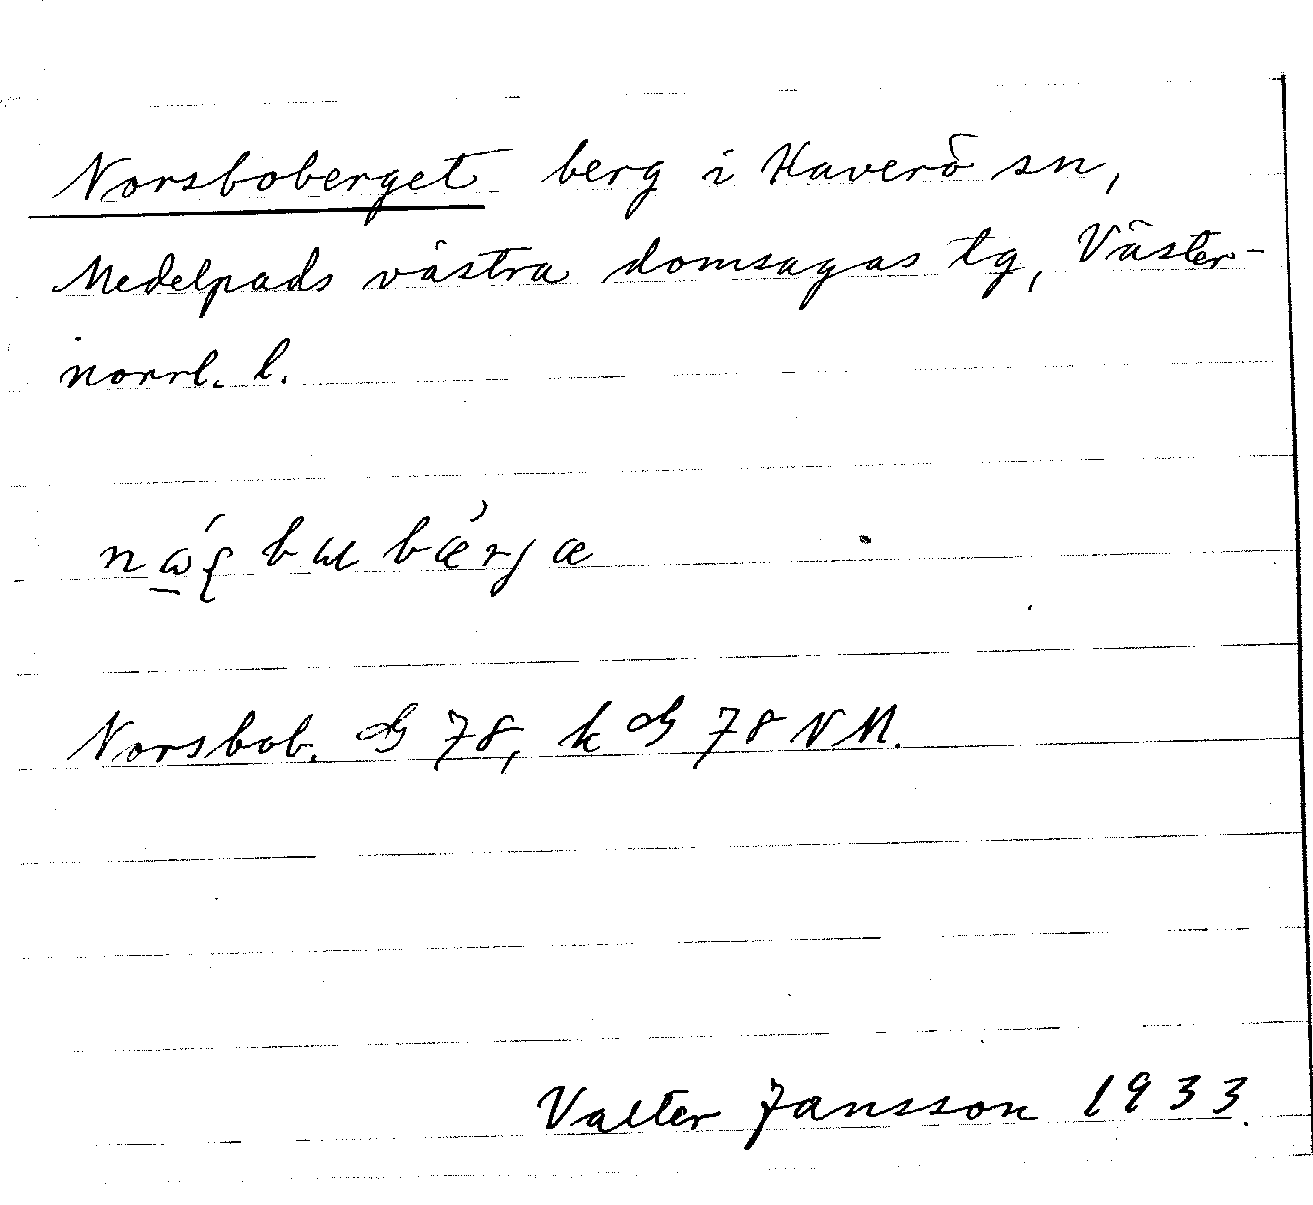 Norsboberget berg i Haverö sn,
Medelpads västra domsagas tg, Väster-
norrl. l.
bɯ bæ̀rjæ
Norsbob. GS 78, k GS 78 NM.
Valter Jansson 1933.